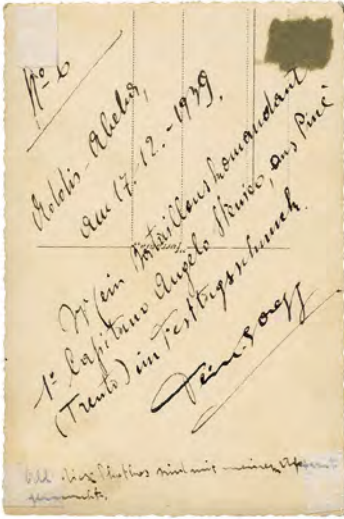 No 6
Addis-Abeba,
am 17.-12.-1939.
Mein Bataillonskomandant
1º Capitano Angelo Stenico, aus Piné
(Trento) im Festtagsschmuck.
Dein
All diese Phothos sind mit meinem Apparat
gemacht.